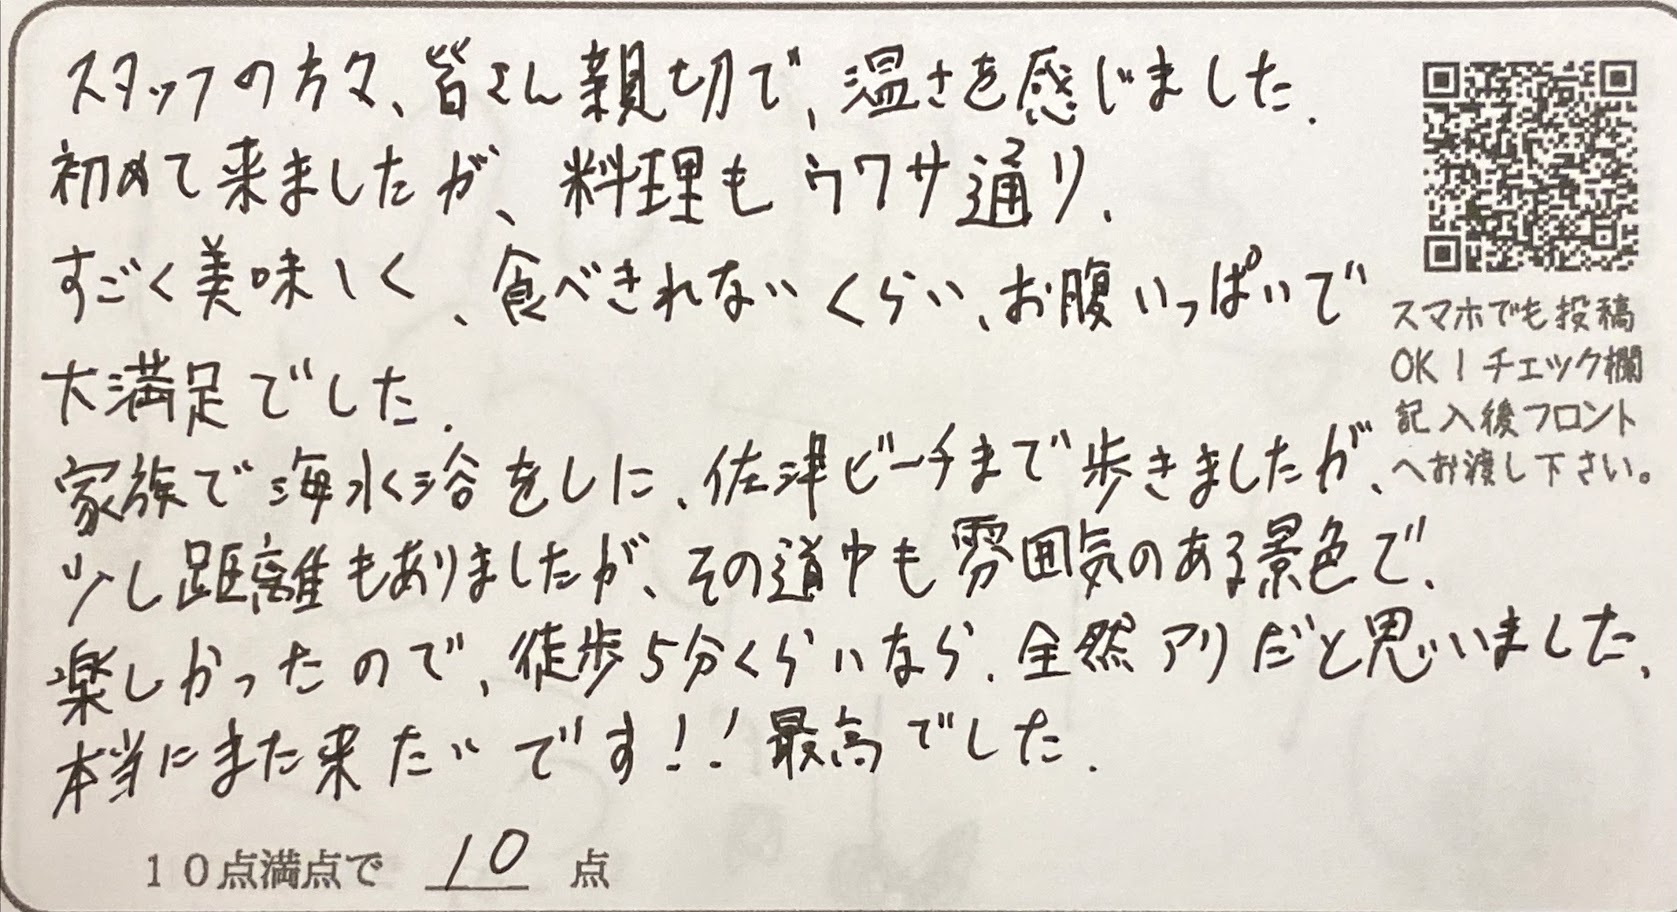 スタッフの方々、皆さん親切で、温さを感じました.
初めて来ましたが、料理もウワサ通り、
すごく美味しく、食べきれないくらい、お腹いっぱいで
大満足でした.
家族で海水浴をしに、佐津ビーチまで歩きましたが、
少し距離もありましたが、その道中も雰囲気のある景色で、
楽しかったので、徒歩5分くらいなら、全然アリだと思いました、
本当にまた来たいです!!最高でした.
10点満点で 10 点
スマホでも投稿
OK!チェック欄
記入後フロント
へお渡し下さい。